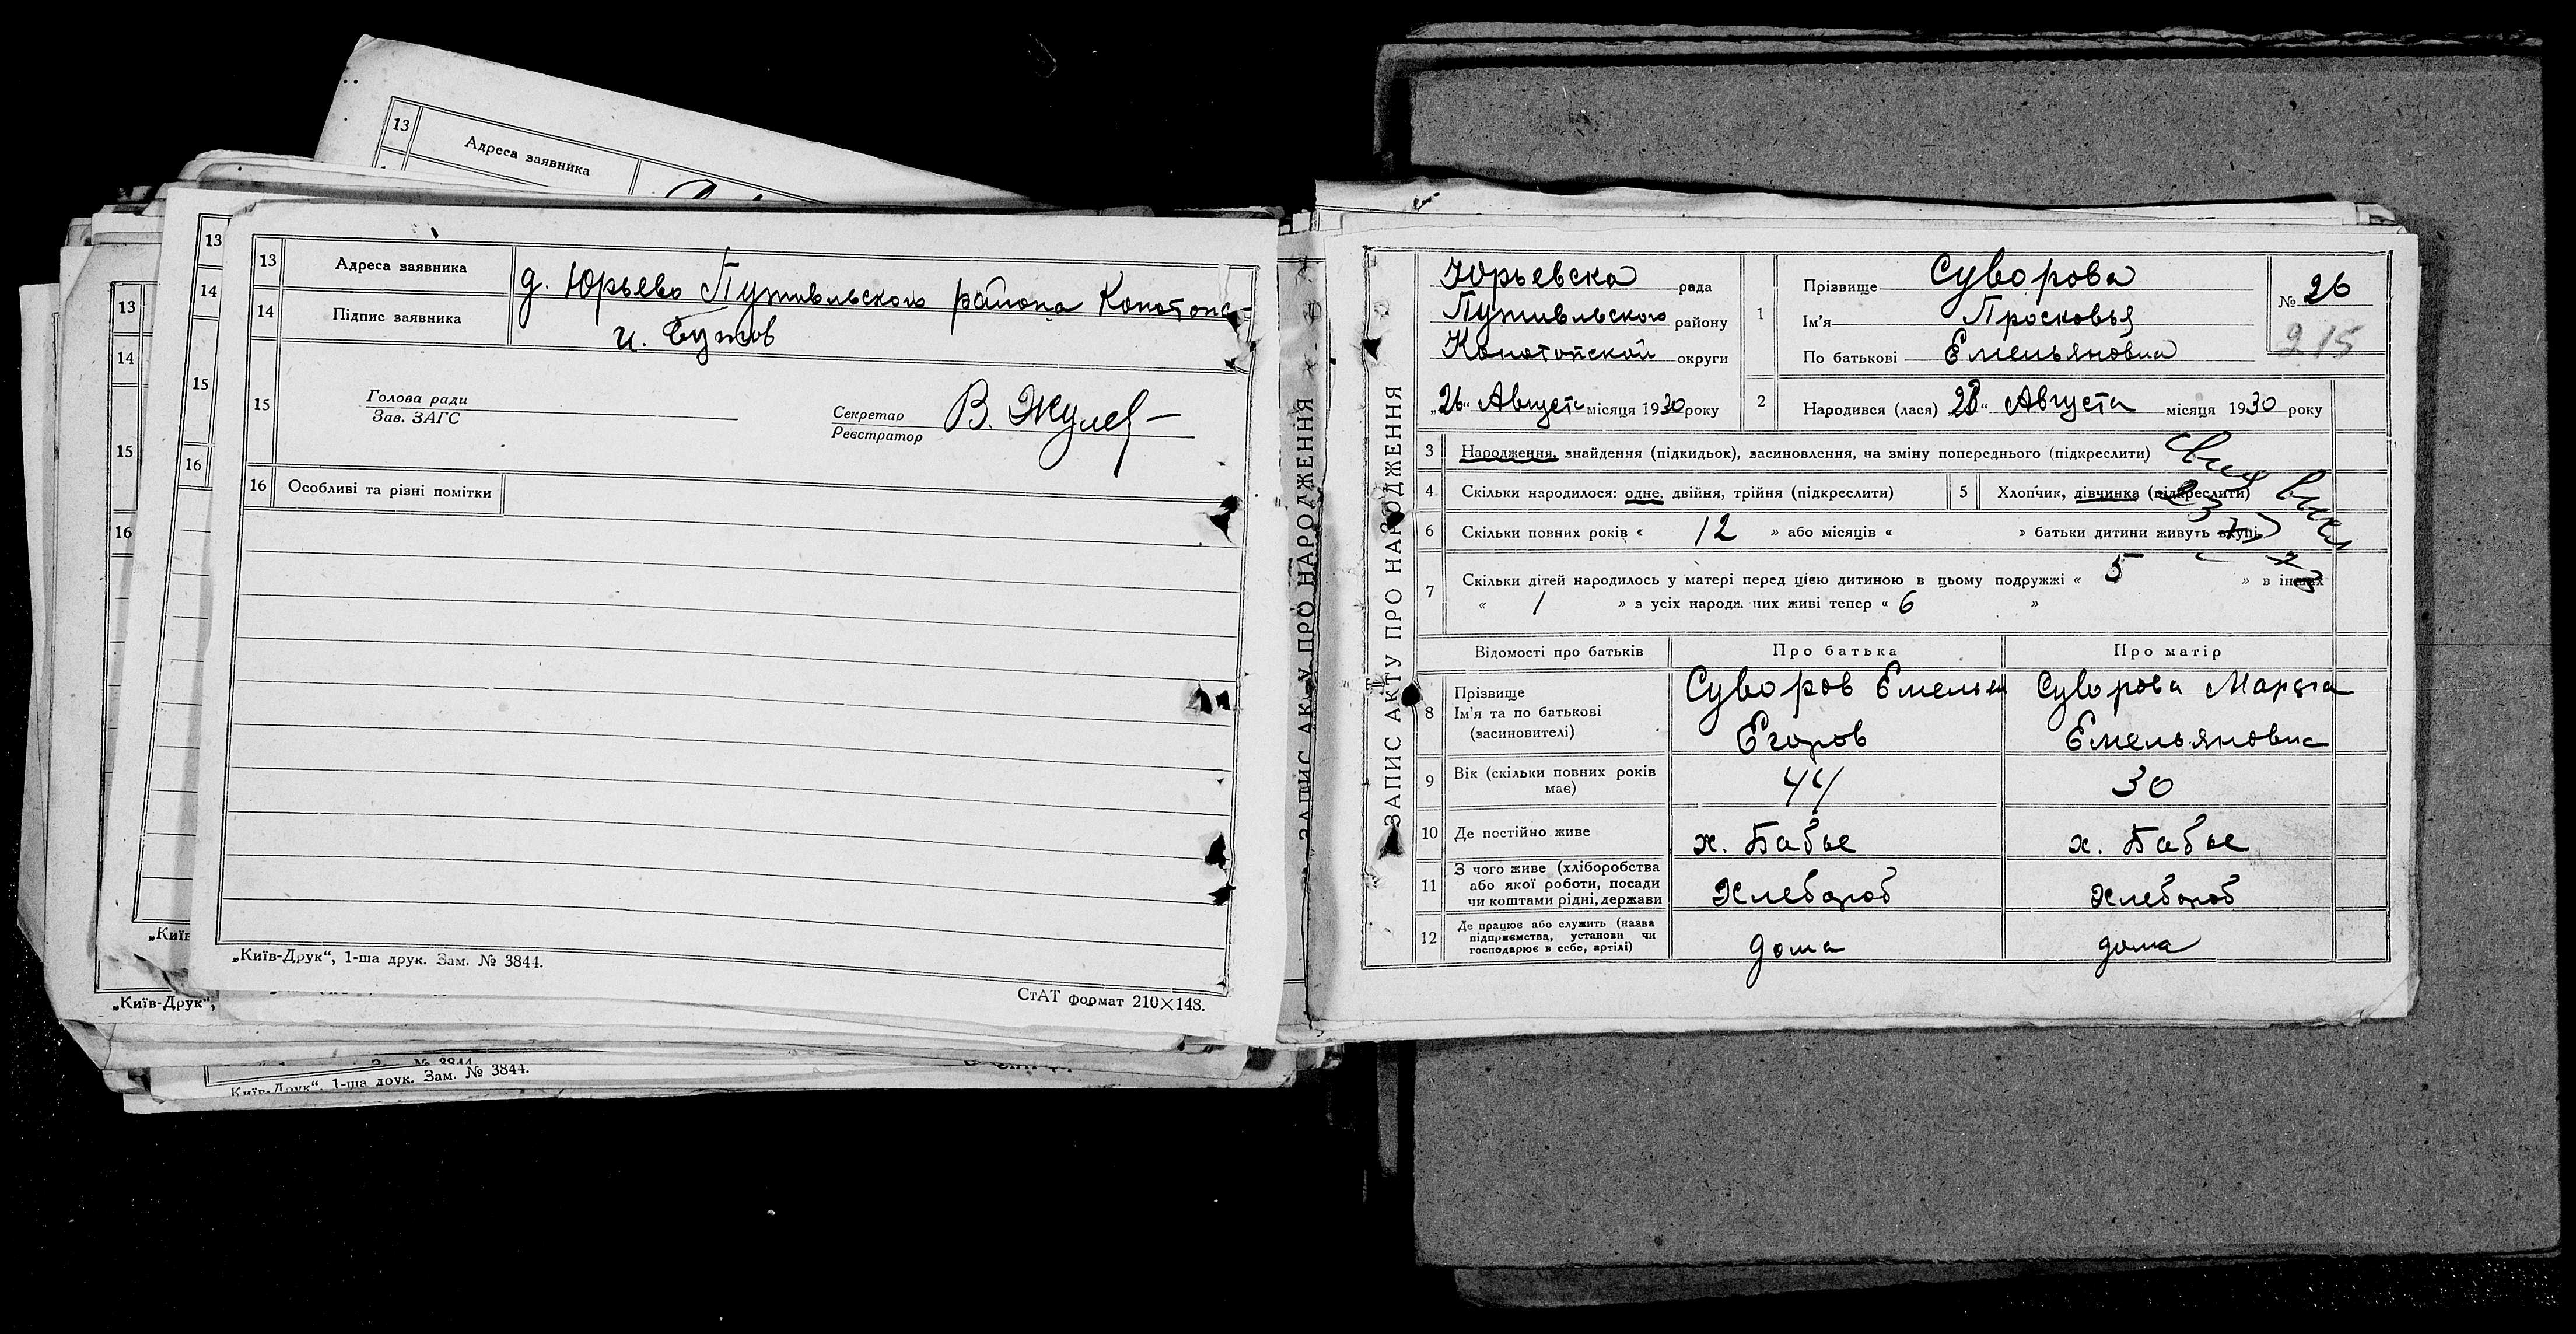 13 Адреса заявника
13 Адреса заявника д. Юрьево Путивльского района Конотопс-
14 Підпис заявника
15 Голова ради
Зав. ЗАГС
Секретар
Реєстратор
В. Жулев
16 Особливі та різні помітки
„Київ-Друк“, 1-ша друк. Зам. № 3844.
СтАТ формат 210×148.
13
14
15
16
13
14
15
16
„Київ-Друк“,
Київ-Друк“, 1-ша друк. Зам. № 3844.
ЗАПИС АКТУ ПРО НАРОДЖЕННЯ
ЗАПИС АКТУ ПРО НАРОДЖЕННЯ
Юрьевска рада
Путивльского району
Конотопской округи
„26“ Августа місяця 1930 року
1 Прізвище Суворова
Ім'я Просковья
По батькові Емельяновна
№ 26
215
2 Народився (лася) „28“ Августа місяця 1930 року
3 Народження, знайдення (підкидьок), засиновлення, на зміну попереднього (підкреслити)
4 Скільки народилося: одне, двійня, трійня (підкреслити)
5 Хлопчик, дівчинка (підкреслити)
6 Скільки повних років « 12 » або місяців « » батьки дитини живуть вкупі
7 Скільки дітей народилось у матері перед цією дитиною в цьому подружжі « 5 » в інших
« 1 » з усіх народж. них живі тепер « 6 »
Відомості про батьків Про батька Про матір
8 Прізвище
Ім'я та по батькові
(засиновителі)
Суворов Емельян
Егоров
Суворова Марфа
Емельяновна
9 Вік (скільки повних років має) 44 30
10 Де постійно живе х. Бабье х. Бабье
11 З чого живе (хліборобства
або якої роботи, посади
чи коштами рідні, держави
Хлебороб Хлебороб
12 Де працює або служить (назва
підприємства, установи чи
господарює в себе, артілі)
дома дома